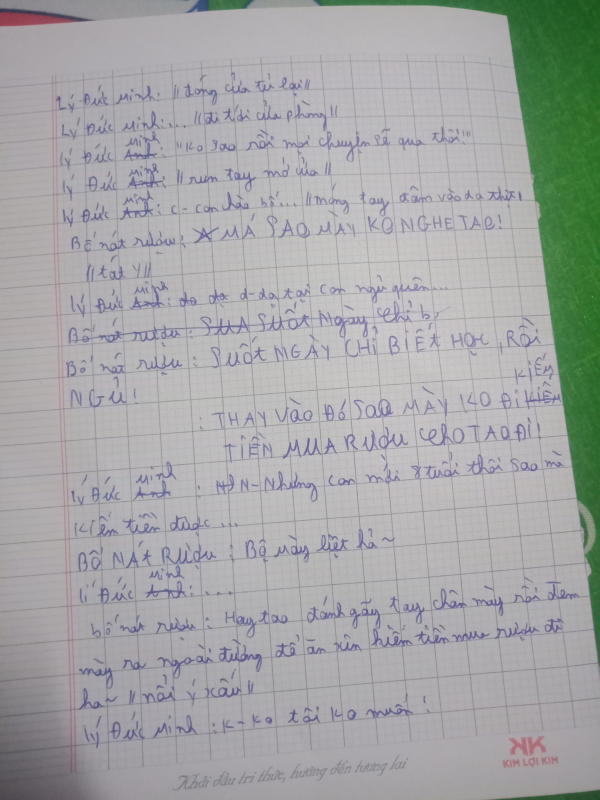 Lý Đức Minh: // đóng cửa tủ lại //
Lý Đức Minh:... // đi tới cửa phòng //
Lý Đức Minh: "Ko sao rồi mọi chuyện sẽ qua thôi!"
Lý Đức Minh: // run tay mở cửa //
Lý Đức Minh: C- con chào bố... // móng tay đâm vào da thịt //
Bố nát rượu: MÁ SAO MÀY KO NGHE TAO!
// tát Y //
Lý Đức Minh: dạ dạ d-dạ tại con ngủ quên...
Bố nát rượu: SUỐT Ngày chỉ b
Bố nát rượu: SUỐT NGÀY CHỈ BIẾT HỌC, RỒI
NGỦ!
: THAY VÀO ĐÓ SAO MÀY KO ĐI KIẾM
TIỀN MUA RƯỢU CHO TAO ĐI!
Lý Đức Minh: N-Nhưng con mới 8 tuổi thôi sao mà
kiếm tiền được...
BỐ NÁT RƯỢU: Bộ mày liệt hả~
Lí Đức Minh: ...
bố nát rượu: Hay tao đánh gãy tay chân mày rồi đem
mày ra ngoài đường để ăn xin kiếm tiền mua rượu đi
ha~ // nổi ý xấu //
Lý Đức Minh: K-Ko tôi ko muốn!
Khởi đầu tri thức, hướng đến tương lai
KIM LỢI KIM